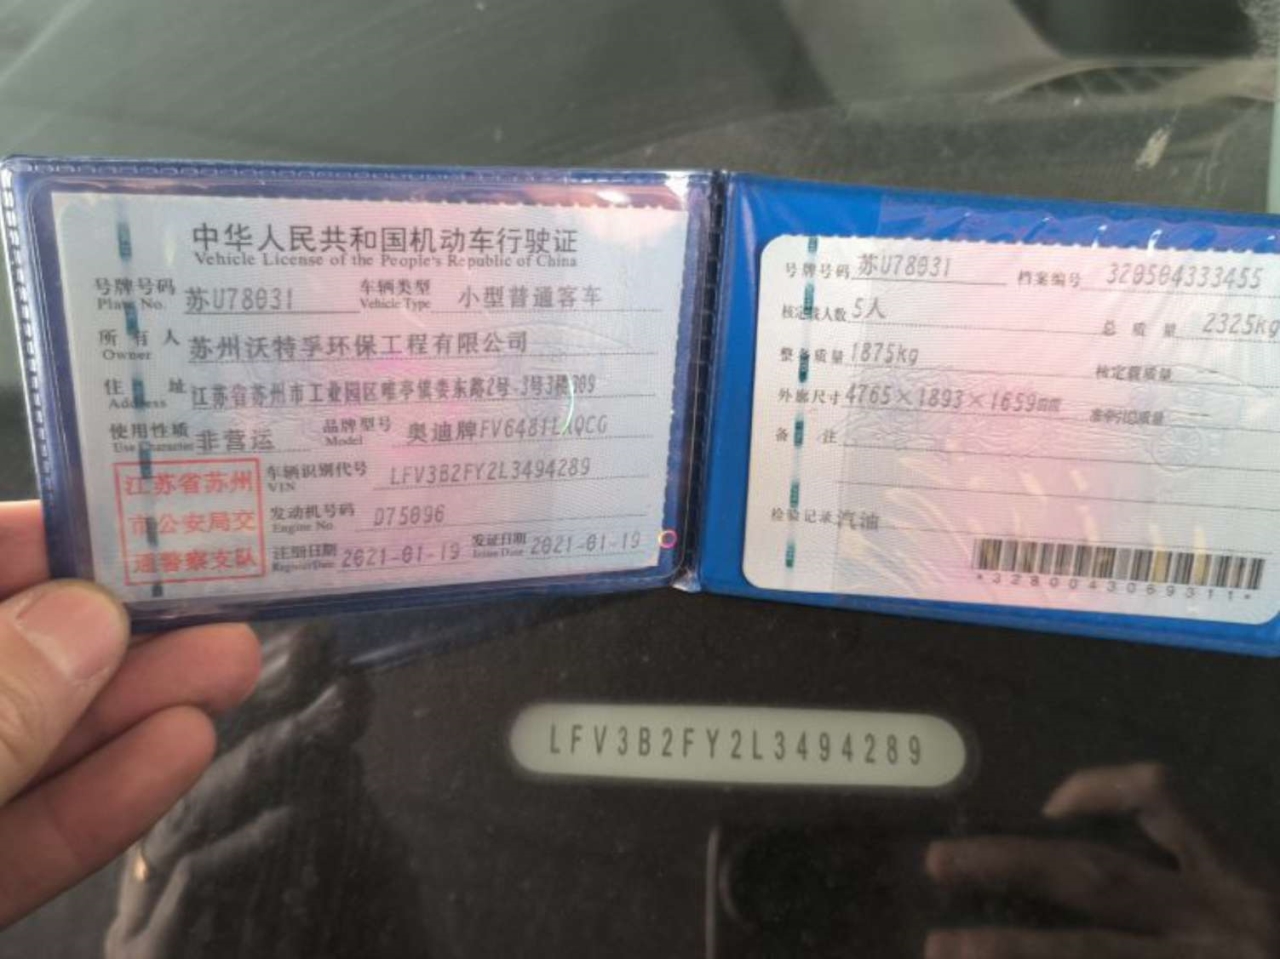 中华人民共和国机动车行驶证
Vehicle License of the People's Republic of China
号牌号码 苏U78031 车辆类型 小型普通客车
Plate No. Vehicle Type
所有人 苏州沃特孚环保工程有限公司
Owner
住址 江苏省苏州市工业园区唯亭镇娄东路2号-3号3楼309
Address
使用性质 非营运 品牌型号 奥迪牌FV6481LAQCG
Use Character Model
江苏省苏州
市公安局交
通警察支队
车辆识别代号 LFV3B2FY2L3494289
VIN
发动机号码 D75096
Engine No.
注册日期 2021-01-19 发证日期 2021-01-19
Register Date Issue Date
号牌号码 苏U78031 档案编号 320504333455
核定载人数 5人 总质量 2325kg
整备质量 1875kg 核定载质量
外廓尺寸 4765×1893×1659mm 准牵引总质量
备注
检验记录 汽油
*3280043069311*
LFV3B2FY2L3494289